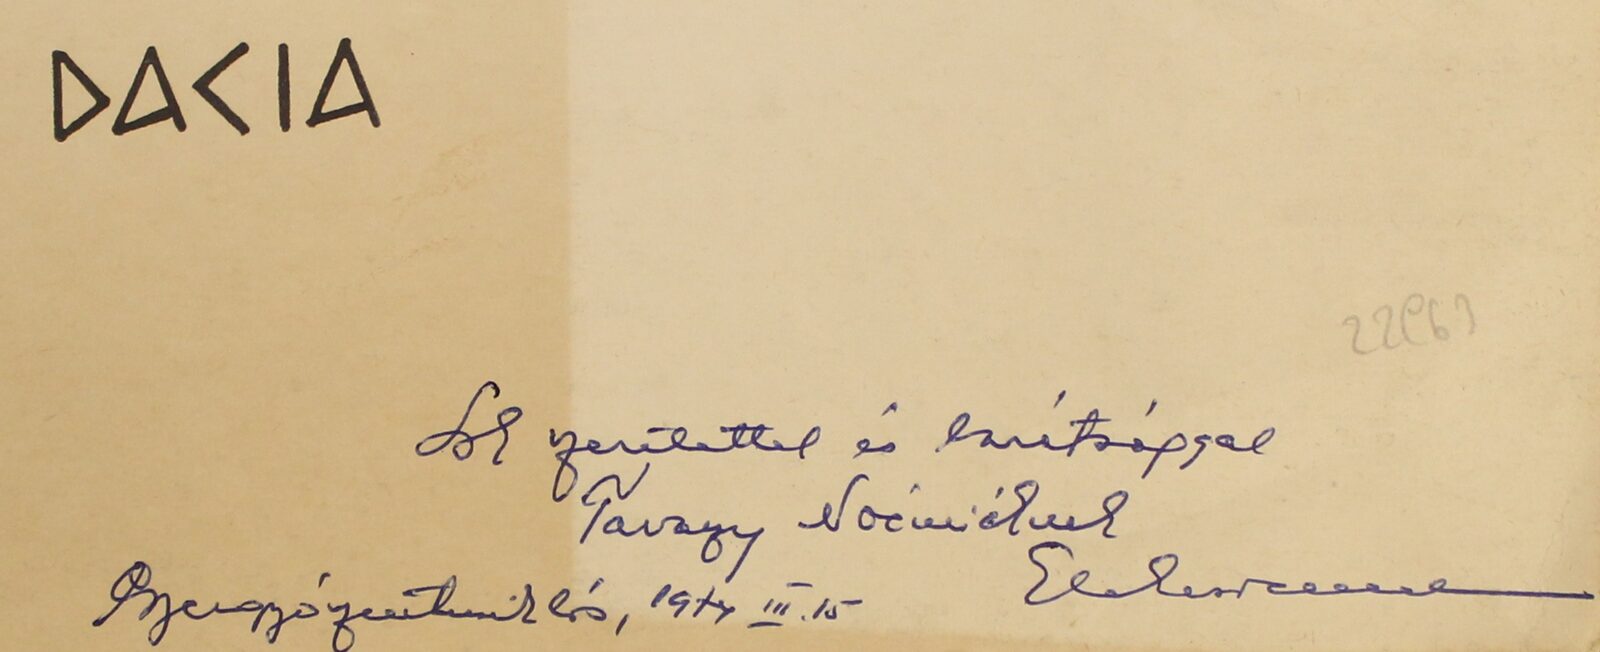 DACIA
Sok szeretettel és barátsággal
Tavaszy Noémiéknek
Gyergyószentmiklós, 1974 III. 15